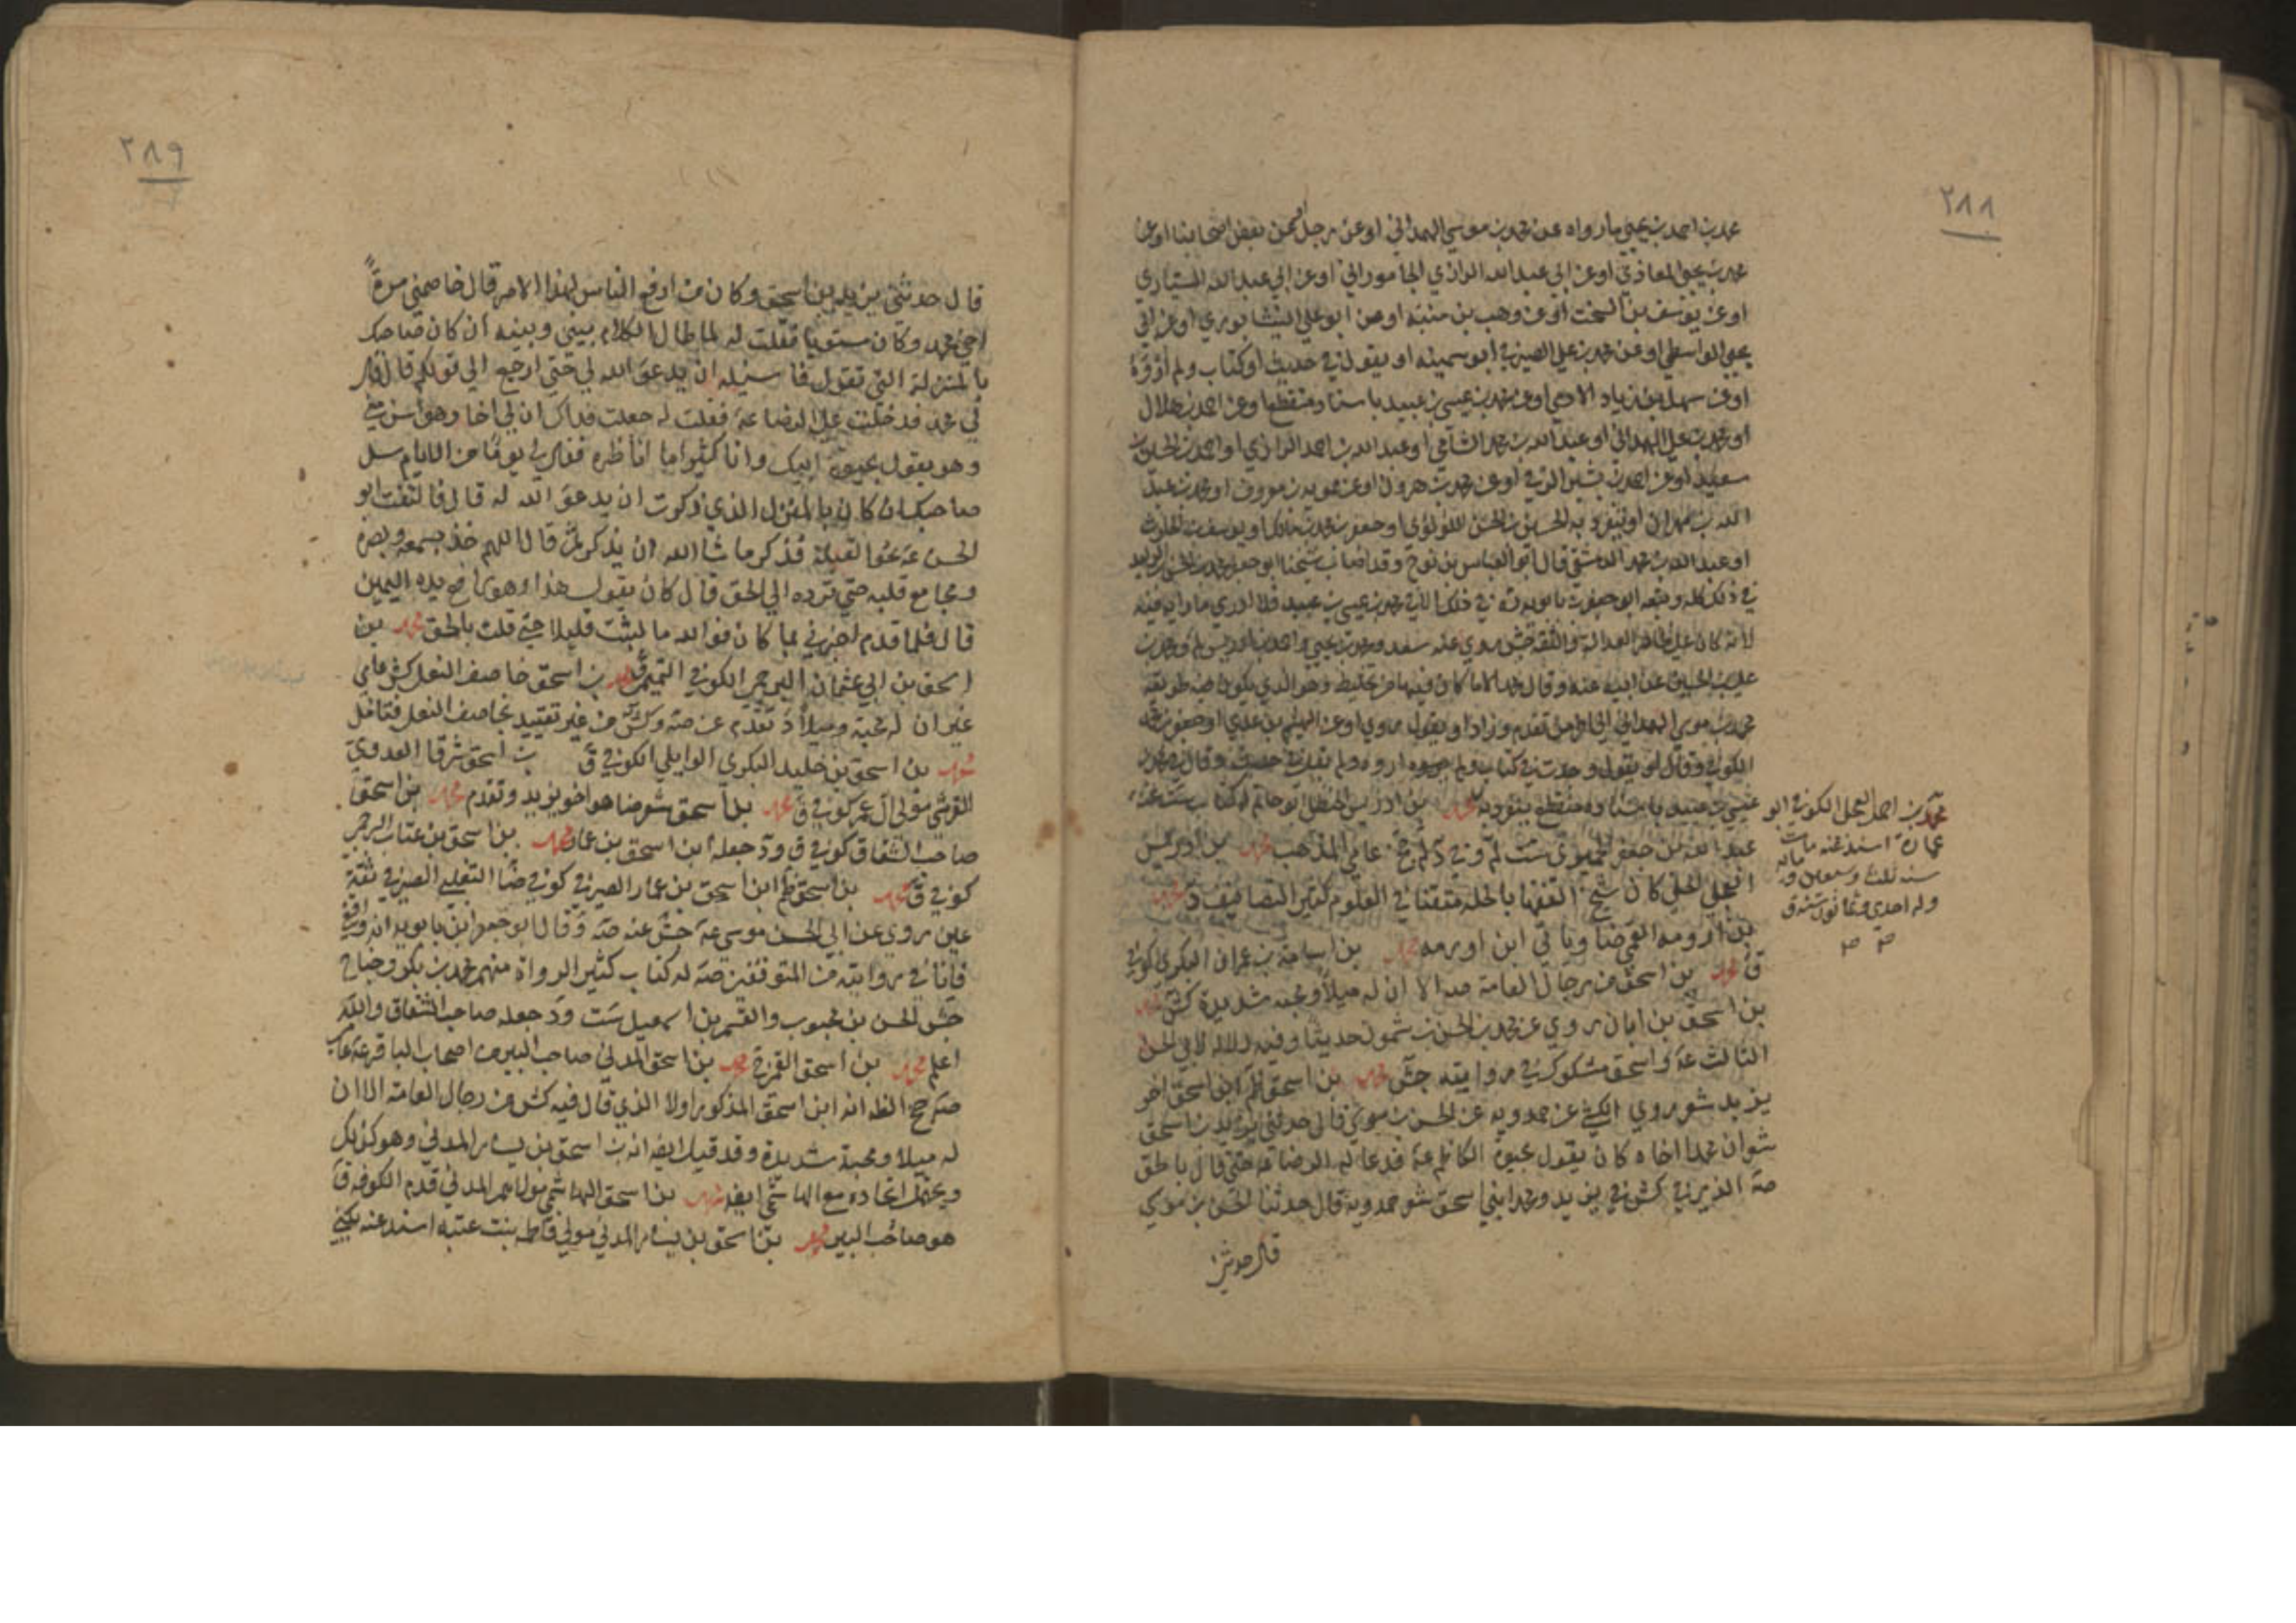 ٢٨٨
محمد بن احمد بن يحيى ما رواه عن محمد بن موسى الهمداني او عن رجل او عن بعض اصحابنا او عن
محمد بن يحيى المعاذي او عن ابي عبد الله الرازي الجاموراني او عن ابي عبد الله السياري
او عن يوسف بن السخت او عن وهب بن منبه او عن ابو علي النيشابوري او عن ابي
يحيى الواسطي او عن محمد بن علي الصيرفي ابو سمينه او يقول في حديث او كتاب ولم اروه
او عن سهل بن زياد الادمي او عن محمد بن عيسى بن عبيد باسناد منقطع او عن احمد بن هلال
او محمد بن علي الهمداني او عبد الله بن محمد الشامي او عبد الله بن احمد الرازي او احمد بن الحسين بن
سعيد او عن احمد بن بشير الرقي او عن محمد بن هرون او عن ممويه بن معروف او محمد بن عبد
الله بن مهران او ينفرد به الحسن بن الحسن اللولوي او جعفر بن محمد بن مالك او يوسف بن الحارث
او عبد الله بن محمد الدمشقي قال ابو العباس بن نوح وقد اصاب شيخنا ابو جعفر محمد بن الحسن بن الوليد
في ذلك كله وتبعه ابو جعفر بن بابويه في ذلك الا في محمد بن عيسى بن عبيد فلا ادري ما رابه فيه
لانه كان على ظاهر العدالة والثقة جش روى عنه سعد ومحمد بن يحيى واحمد بن ادريس ومحمد بن
علي بن الحسين عن ابيه عنه وقال محمد الا ما كان فيها من تخليط وهو الذي يكون في طريقه
محمد بن موسى الهمداني الى اخر ما تقدم وزاد او يقول وروي او عن الهيثم بن عدي او جعفر بن محمد
الكوفي وقال او يقول وجدت في كتاب ولم اروه ولم
عيسى بن عبيد باسناد منقطع ينفرد به محمد بن ادريس الحنظلي ابو حاتم له كتاب ست عنه
عبد الله بن جعفر الحميري ست لم وفي عامي المذهب محمد بن ادريس
العجلي الحلي كان شيخ الفقهاء بالحلة متقنا في العلوم كثير التصانيف د محمد
بن ارومه القمي ضا وياتي ابن اورمه محمد بن اسامة بن عمران البكري كوفي
ق محمد بن اسحق من رجال العامة الا ان له ميلا ومحبة شديدة كش محمد
بن اسحق بن ابان روى عن محمد بن الحسن بن شمون حديثا وفيه دلالة لابي الحسن
الثالث ع واسحق مشكوك في روايته جش محمد بن اسحق ابن اسحق اخو
يزيد شعر روى الكشي عن حمدويه عن الحسن بن موسى قال حدثني يزيد بن اسحق
شعر ان محمدا اخاه كان يقول بحيوة الكاظم ع فدعا له الرضا ع حتى قال بالحق
صه الذي في كش في يزيد ومحمد ابني اسحق شعر حمدويه قال حدثنا الحسن بن موسى
قال حدثني
محمد بن احمد العجلي الكوفي ابو
عمارة اسند عنه مات
سنه ثلث وسبعين وماية
وله احدي وثمانون سنه ق
٢٨٩
قال حدثني يزيد بن اسحق وكان من ارفع الناس لهذا الامر قال خاصمني مرة
اخي محمد وكان مستويا فقلت له لما طال الكلام بيني وبينه ان كان صاحبك
بالمنزلة التي تقول فاسئله ان يدعو الله لي حتى ارجع الي قولكم قال قال
لي محمد فدخلت على الرضا ع فقلت له جعلت فداك ان لي اخا وهو اسن مني
وهو يقول بحيوة ابيك وانا كثيرا ما اناظره فقال لي يوما من الايام سل
صاحبك ان كان بالمنزل الذي ذكرت ان يدعو الله له قال فالتفت ابو
الحسن ع نحو القبلة فذكر ما شا الله ان يذكر ثم قال اللهم خذ بسمعه وبصره
ومجامع قلبه حتى ترده الي الحق قال كان يقول هذا وهو رافع يده اليمين
قال فلما قدم اخبرني بما كان فوالله ما لبثت قليلا حتى قلت بالحق محمد بن
اسحق بن ابي عثمان البرجمي الكوفي التميمي ق محمد بن اسحق خاصف النعل كش عامي
غير ان له محبة وميلا د تقدم عن صه وكش من غير تقييد بخاصف النعل فتامل
محمد بن اسحق بن خليد البكري الوايلي الكوفي ق بن اسحق شرقا العدوي
القرشي مولى ال عمر كوفي ق محمد بن اسحق شعر ضا هو اخو يزيد وتقدم محمد بن اسحق
صاحب الشقاق كوفي ق ود جعله ابن اسحق بن عمار محمد بن اسحق بن عتاب البرجمي
كوفي ق محمد بن اسحق ظم ابن اسحق بن عمار الصيرفي كوفي ضا التغلبي الصيرفي ثقة
عين روى عن ابي الحسن موسى ع جش عنه صه وقال ابو جعفر ابن بابويه انه واقفي
فانا في روايته من المتوقفين صه له كتاب كثير الرواة منهم محمد بن بكر بن جناح
جش الحسن بن محبوب والقسم بن اسمعيل ست ود جعله صاحب الشقاق والله
اعلم محمد بن اسحق القمي محمد بن اسحق المدني صاحب السير من اصحاب الباقر ع عامي
صه جخ الظ انه ابن اسحق المذكور اولا الذي قال فيه كش من رجال العامة الا ان
له ميلا ومحبة شديدة وقد قيل ايضا انه بن اسحق بن يسار المدني وهو كذلك
ويحتمل اتحاده مع الهاشمي ايضا محمد بن اسحق الهاشمي مولاهم المدني قدم الكوفه ق
هو صاحب السير محمد بن اسحق بن يسار المدني مولى فاطمه بنت عتبه اسند عنه يكنى